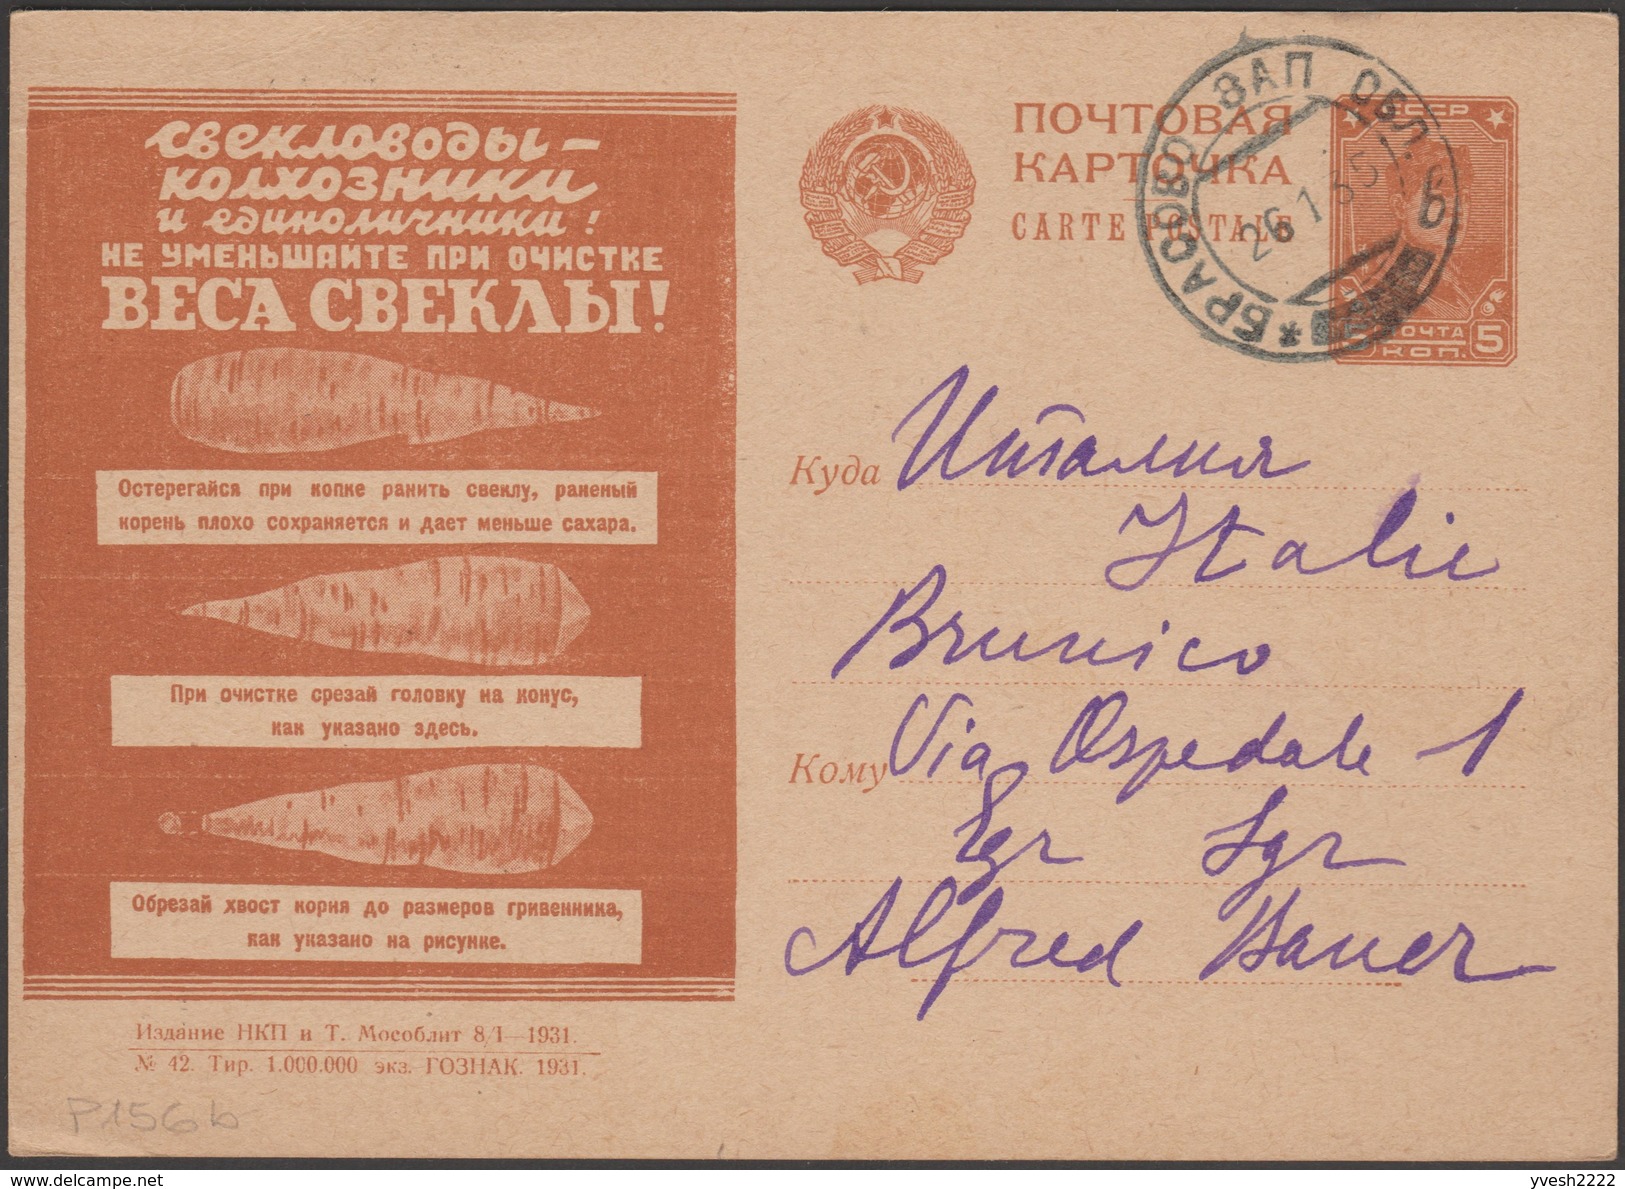 свекловоды –
колхозники
и единоличники!
НЕ УМЕНЬШАЙТЕ ПРИ ОЧИСТКЕ
ВЕСА СВЕКЛЫ!
Остерегайся при копке ранить свеклу, раненый
корень плохо сохраняется и дает меньше сахара.
При очистке срезай головку на конус,
как указано здесь.
Обрезай хвост корня до размеров гривенника,
как указано на рисунке.
Издание НКП и Т. Мособлит 8/I—1931.
№ 42. Тир. 1.000.000 экз. ГОЗНАК. 1931.
P156b
ПОЧТОВАЯ
КАРТОЧКА
CARTE POSTALE
БРАСОВО ЗАП ОБЛ. б
26 1 35
СССР
ПОЧТА
5 КОП. 5
Куда Италия
Italie
Brunico
Кому Via Ospedale 1
Sgr
Alfred Bauer
yvesh2222